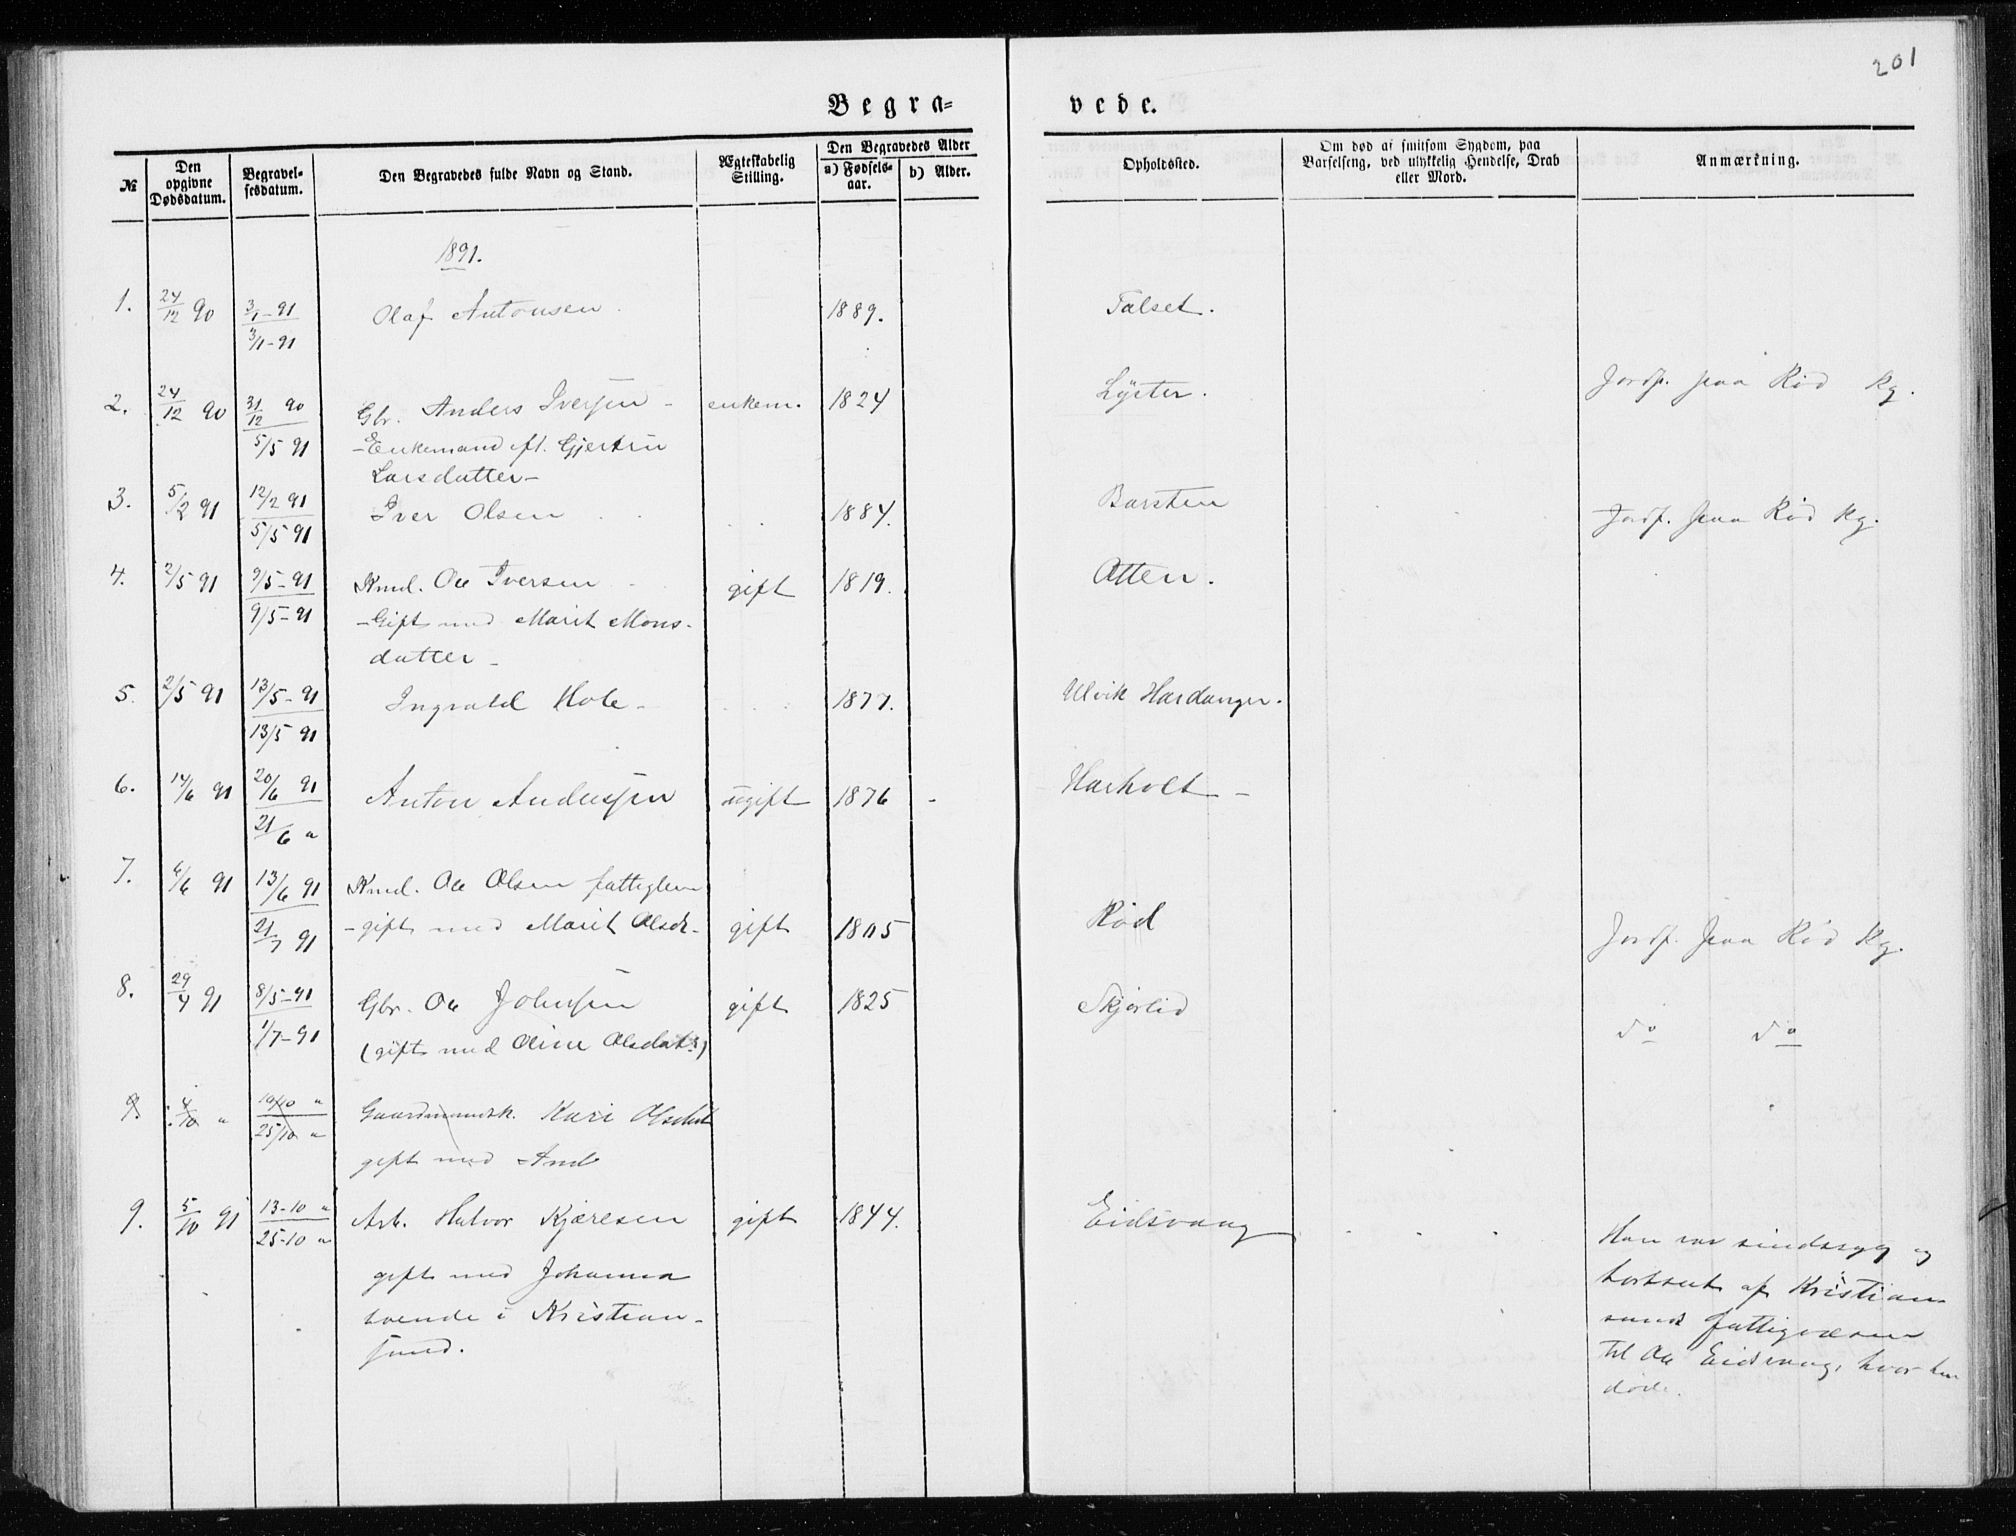 201
Begra=
vede.
№
Den opgivne Dødsdatum.
Begravel-sesdatum.
Den Begravedes fulde Navn og Stand.
Ægteskabelig Stilling.
Den Begravedes Alder
a) Fødsels-aar.
b) Alder.
Opholdssted.
Om død af smitsom Sygdom, paa Barselseng, ved ulykkelig Hendelse, Drab eller Mord.
Anmærkning.
1891.
1. 24/12 90 3/1-91 Olaf Antonsen 1889. Talset.
3/1-91
2. 24/12 90 31/12 90 Gbr. Anders Iversen - enkem. 1824 Lyster. Jordf. paa Rød Kg.
5/5 91 -Enkemand eft. Gjertru
Larsdatter-
3. 5/2 91 12/2 91 Iver Olsen 1884. Barsten Jordf. paa Rød Kg.
5/5 91
4. 2/5 91 9/5-91 Kmd. Ole Iversen gift 1819. Otten.
9/5-91 -Gift med Marit Mons-
datter-
5. 2/5 91 13/5-91 Ingvald Hole - 1877. Ulvik Hardanger.
13/5 91
6. 14/6 91 20/6 91 Anton Anderssen ugift 1876 - Harholt -
21/6 "
7. 6/6 91 13/6 91 Kmd. Ole Olsen fattiglem
21/7 91 -gift med Marit Olsdt- gift 1805 Rød Jordf. paa Rød Kg.
8. 29/4 91 8/5-91 Gbr. Ole Johnsen gift 1825 Skjørlid do do
1/7-91 (gift med Oline Olsdatr)
9. 4/10 " 10/10 " Gaardmandsk. Kari Olsdat
25/10 " gift med And
9. 5/10 91 13-10 " Arb. Halvor Kjæresen gift 1844. Eidsvaag Han var sindssyg og
25-10 " gift med Johanna bortsat af Kristian
boende i Kristian- sunds fattigvæsen
sund. til Ole Eidsvaag, hvor han
døde.